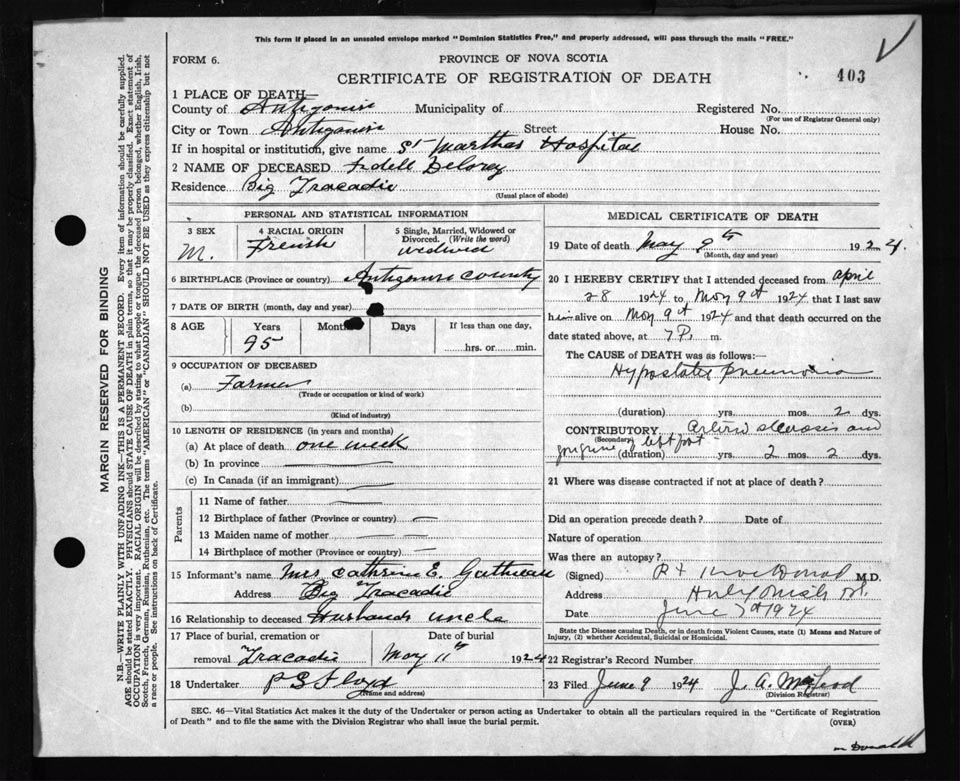 This form if placed in an unsealed envelope marked "Dominion Statistics Free," and properly addressed, will pass through the mails "FREE."
FORM 6.
PROVINCE OF NOVA SCOTIA
CERTIFICATE OF REGISTRATION OF DEATH
403
1 PLACE OF DEATH—
County of Antigonish Municipality of Registered No.
(For use of Registrar General only)
City or Town Antigonish Street House No.
If in hospital or institution, give name St Marthas Hospital
2 NAME OF DECEASED Fidell Delorey
Residence Big Tracadie
(Usual place of abode)
PERSONAL AND STATISTICAL INFORMATION
3 SEX 4 RACIAL ORIGIN 5 Single, Married, Widowed or Divorced. (Write the word)
M. French
6 BIRTHPLACE (Province or country) County
7 DATE OF BIRTH (month, day and year)
8 AGE Years Months Days If less than one day,
95 hrs. or min.
9 OCCUPATION OF DECEASED
(a) Farmer
(Trade or occupation or kind of work)
(b)
(Kind of industry)
10 LENGTH OF RESIDENCE (in years and months)
(a) At place of death one week
(b) In province
(c) In Canada (if an immigrant)
Parents
11 Name of father
12 Birthplace of father (Province or country)
13 Maiden name of mother
14 Birthplace of mother (Province or country)
15 Informant's name Mrs Cathrine E.
Address Big Tracadie
16 Relationship to deceased Husbands uncle
17 Place of burial, cremation or Date of burial
removal Tracadie May 11th 1924
18 Undertaker P S Floyd
(Name and address)
MEDICAL CERTIFICATE OF DEATH
19 Date of death May 9th 1924.
(Month, day and year)
20 I HEREBY CERTIFY that I attended deceased from April
28 1924 to May 9th 1924 that I last saw
him alive on May 9th 1924 and that death occurred on
date stated above, at 7 P. m.
The CAUSE OF DEATH was as follows:—
Hypostatic Pneumonia
(duration) yrs. mos. 2 dys.
CONTRIBUTORY Arterio sclerosis and
(Secondary) left foot
(duration) yrs. 2 mos. 2 dys.
21 Where was disease contracted if not at place of death?
Did an operation precede death? Date of
Nature of operation
Was there an autopsy?
(Signed) M.D.
Address
Date June 1924
State the Disease causing Death, or in death from Violent Causes, state (1) Means and Nature of Injury, (2) whether Accidental, Suicidal or Homicidal.
22 Registrar's Record Number
23 Filed June 9 1924 J. A. McLeod
(Division Registrar)
SEC. 46—Vital Statistics Act makes it the duty of the Undertaker or person acting as Undertaker to obtain all the particulars required in the "Certificate of Registration
of Death" and to file the same with the Division Registrar who shall issue the burial permit. (OVER)
MARGIN RESERVED FOR BINDING
N.B.—WRITE PLAINLY WITH UNFADING INK—THIS IS A PERMANENT RECORD. Every item of information should be carefully supplied.
AGE should be stated EXACTLY. PHYSICIANS should STATE CAUSE OF DEATH in plain terms, so that it may be properly classified. Exact statement of
OCCUPATION is very important. RACIAL ORIGIN will be described by stating to what people or tongue the deceased person belonged, whether English, Irish,
Scotch, French, German, Russian, Ruthenian, etc. The terms "AMERICAN" or "CANADIAN" SHOULD NOT BE USED as they express citizenship but not
a race or people. See instructions on back of Certificate.